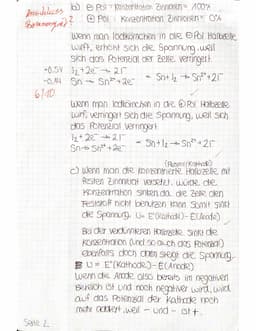 b) ⊖ Pol - Konzentration Zinnionen = 100%
⊕ Pol: Konzentration Zinnionen = 0%
Wenn man Iodkörnchen in die ⊖ Pol Halbzelle
wirft, erhöht sich die Spannung, weil
sich das Potenzial der Zelle verringert
I₂ + 2e⁻ → 2I⁻
Sn → Sn²⁺ + 2e⁻ - Sn + I₂ → Sn²⁺ + 2I⁻
6/10
Wenn man Iodkörnchen in die ⊕ Pol Halbzelle
wirf, verringert sich die Spannung, weil sich
das Potenzial verringert
I₂ + 2e⁻ → 2I⁻
Sn → Sn²⁺ + 2e⁻ - Sn + I₂ → Sn²⁺ + 2I⁻
c) Wenn man die konzentrierte Halbzelle mit
festen Zinnnitrat versetzt, würde die
Konzentration sinken da die Zelle den
Feststoff nicht benutzen kann somit sinkt
die Spannung. U = E°(Kathode) - E(Anode)
Bei der verdünnten Halbzelle sinkt die
Konzentration (und so auch das Potential)
ebenfalls doch dann steigt die Spannung.
U = E°(Kathode) - E(Anode)
Wenn die Anode also bereits im negativen
Bereich ist und noch negativer wird, wird
auf das Potenzial der Kathode noch
mehr addiert weil - und - ist +.
Seite 2